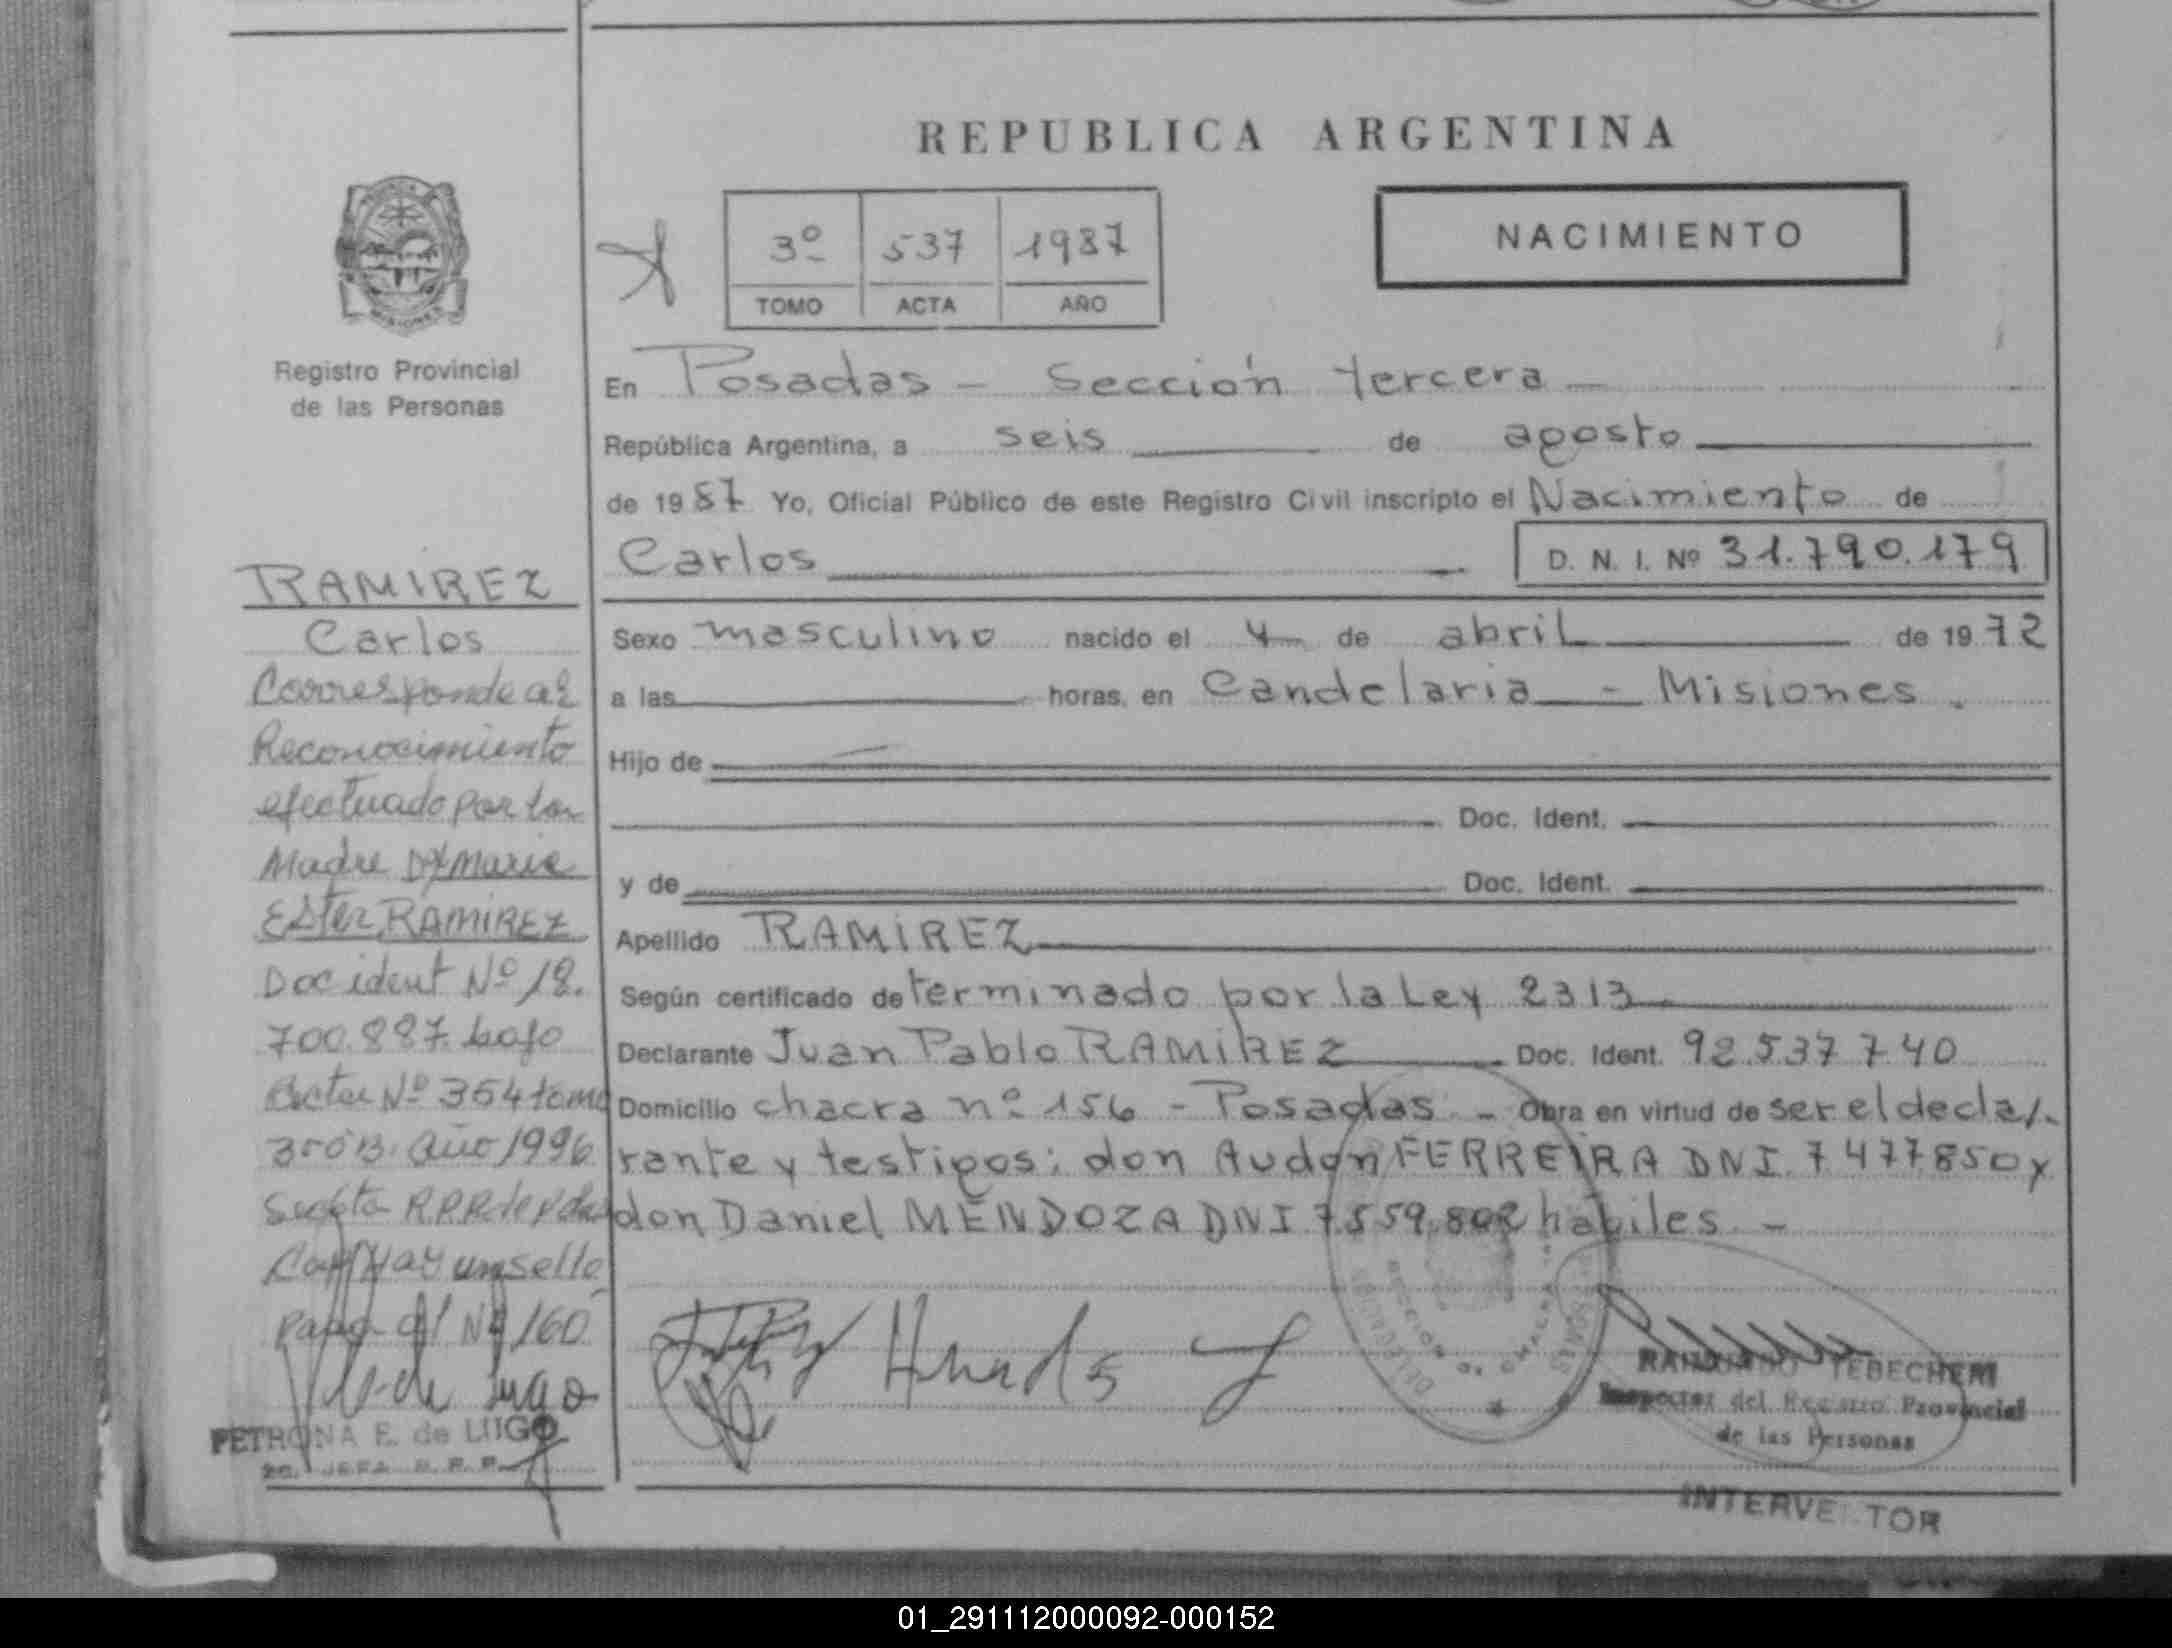 REPUBLICA ARGENTINA
NACIMIENTO
3º 537 1987
TOMO ACTA AÑO
MISIONES
Registro Provincial
de las Personas
En Posadas - Sección tercera
República Argentina, a seis de agosto
de 1987 Yo, Oficial Público de este Registro Civil inscripto el Nacimiento de
Carlos D. N. I. Nº 31.790.179
Sexo masculino nacido el 4 de abril de 1972
a las horas, en Candelaria - Misiones.
Hijo de
Doc. Ident.
y de Doc. Ident.
Apellido RAMIREZ
Según certificado determinado por la Ley 2313
Declarante Juan Pablo RAMIREZ Doc. Ident. 92.537740
Domicilio chacra nº 156 - Posadas - Obra en virtud de ser el decla/-
rante y testigos: don Audon FERREIRA DNI. 7477.850 y
don Daniel MENDOZA DNI 7559.802 habiles -
RAMIREZ
Carlos
Corresponde al
Reconocimiento
efectuado por la
Madre Dª Maria
Ester RAMIREZ
Doc ident Nº 18.
700.887. bajo
Acta Nº 354 tomo
Año 1996
Hay un sello
Nº 160
de Lugo
PETRONA E. de LUGO
JEFA R. P. P.
TEBECHERI
Inspector del Registro Provincial
de las Personas
INTERVENTOR
01_291112000092-000152